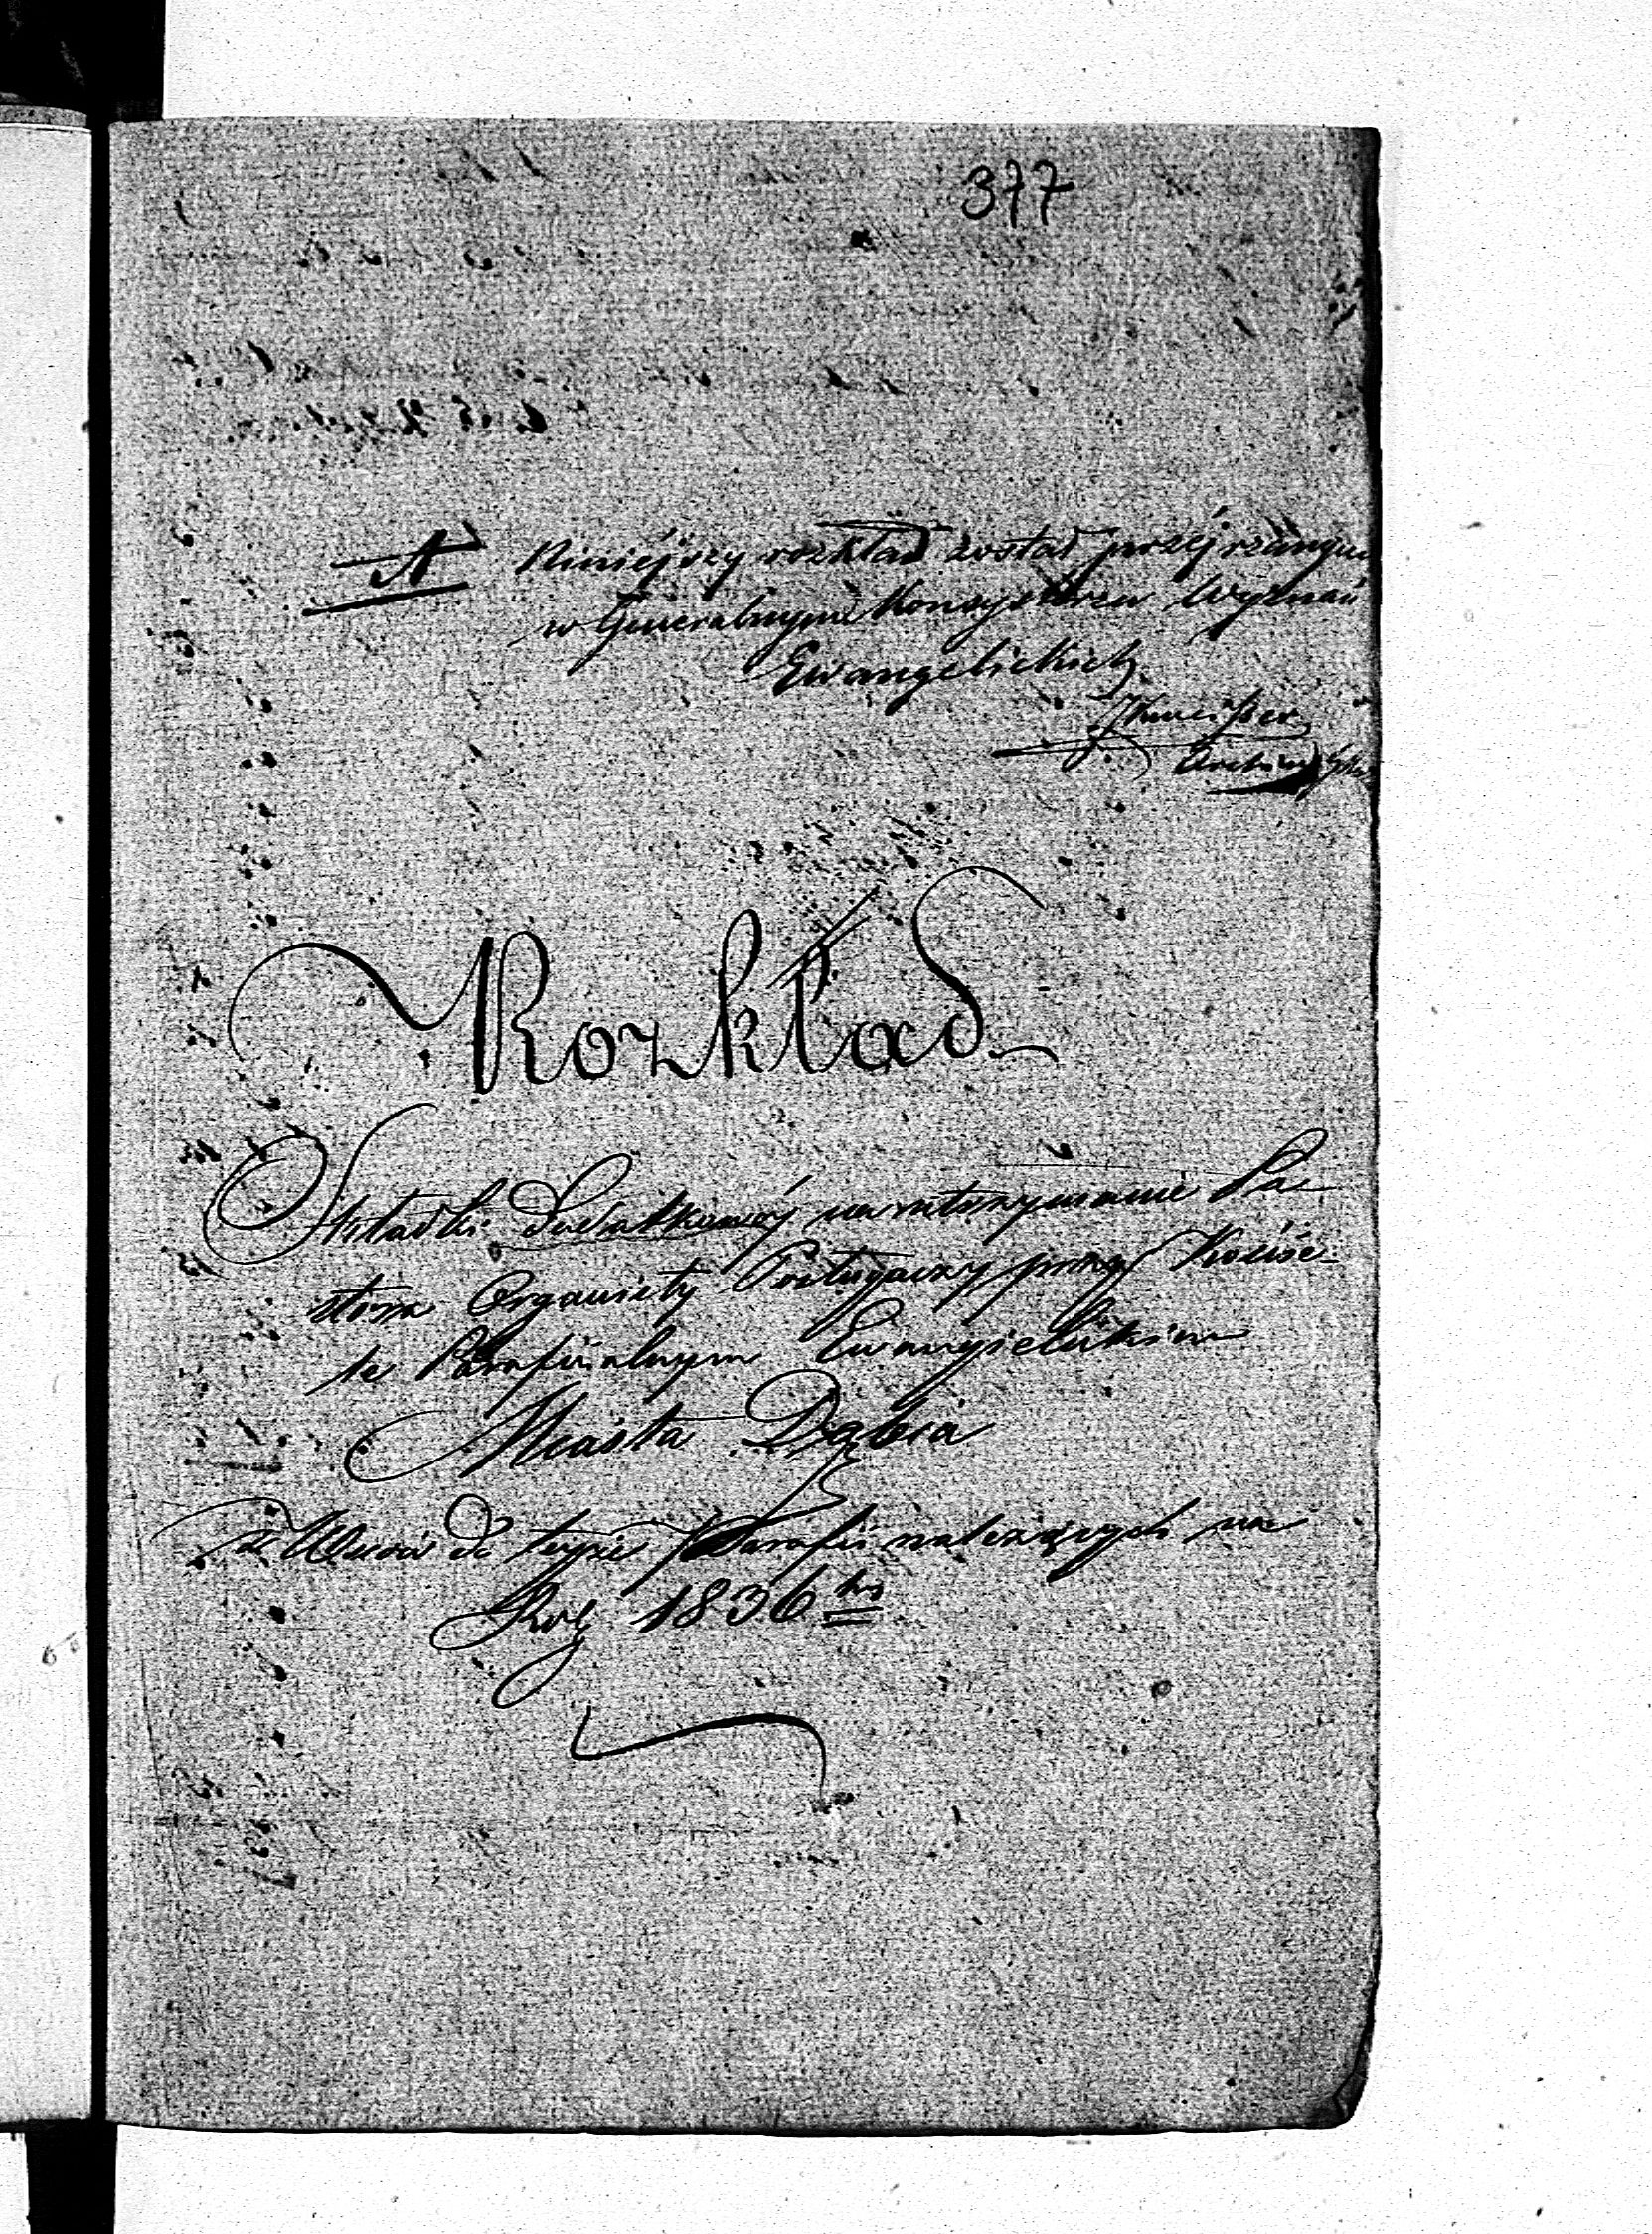 377
A Niniéjszy rozkład został przéjrzanym
w Generalnym Konsystorzu Wyznań
Ewangelickich
Rozkład
Składki Dodatkowéj na utrzymanie Pa-
stora Organisty Posługaczy przy Koście-
le Parafialnym Ewangielickim
Miasta Dąbia
z do tejże Parafii należących na
Rok 1836